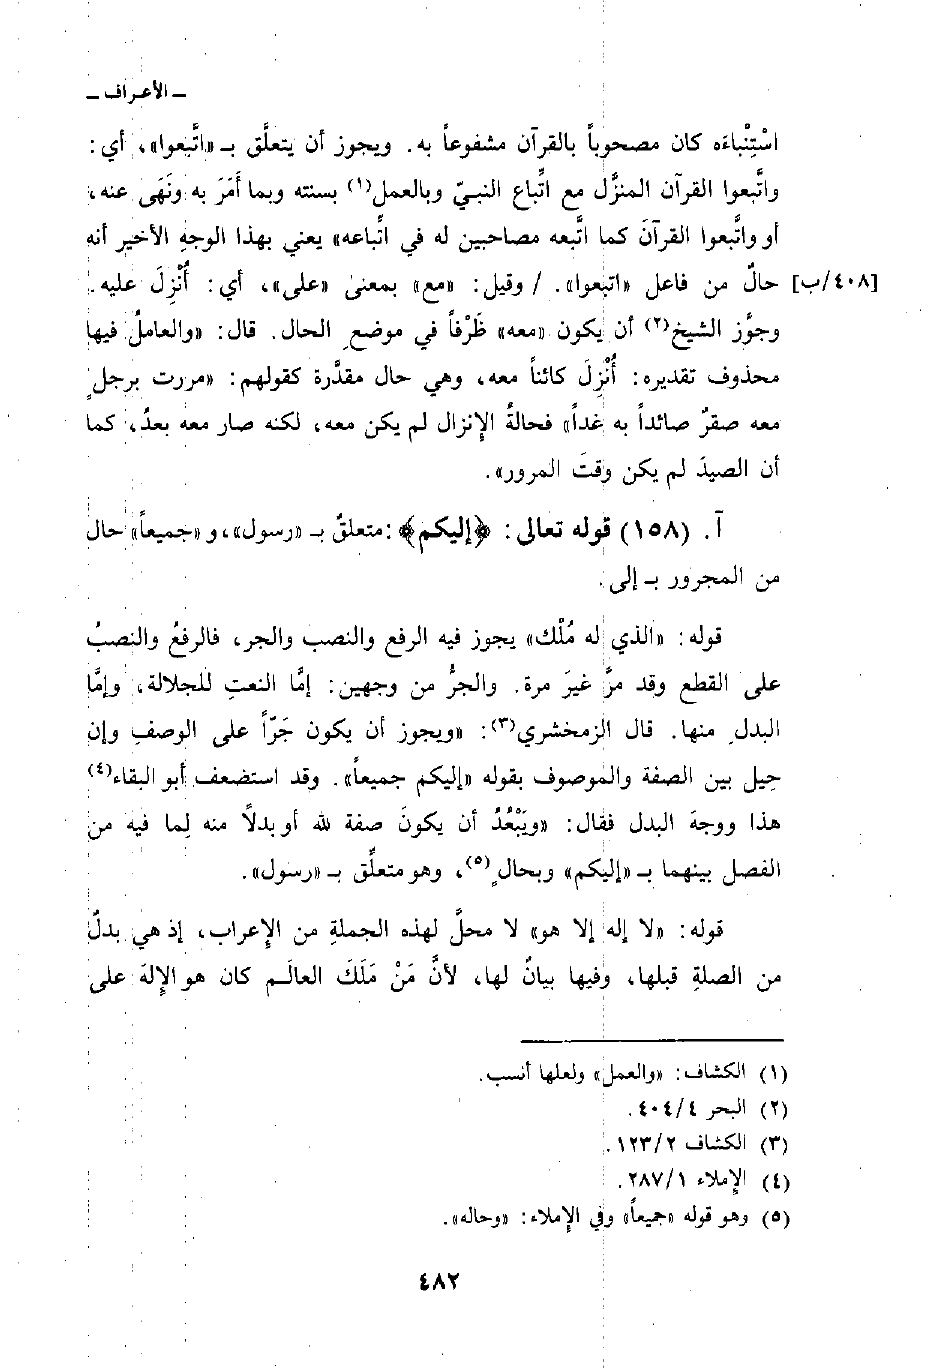 ـ الأعراف ـ
اسْتِنْباءَه كان مصحوباً بالقرآن مشفوعاً به. ويجوز أن يتعلَّق بـ «اتَّبعوا»، أي:
واتَّبعوا القرآن المنزَّل مع اتِّباع النبيّ وبالعمل(١) بسنته وبما أَمَرَ به ونَهَى عنه،
أو واتَّبعوا القرآنَ كما اتَّبعه مصاحبين له في اتِّباعه» يعني بهذا الوجهِ الأخير أنه
[٤٠٨/ب] حالٌ من فاعل «اتبعوا». / وقيل: «مع» بمعنى «على»، أي: أُنْزِلَ عليه.
وجوَّز الشيخ(٢) أن يكون «معه» ظَرْفاً في موضعِ الحال. قال: «والعاملُ فيها
محذوف تقديره: أُنْزِلَ كائناً معه، وهي حال مقدَّرة كقولهم: «مررت برجلٍ
معه صقرٌ صائداً به غداً» فحالةُ الإنزال لم يكن معه، لكنه صار معه بعدُ، كما
أن الصيدَ لم يكن وقتَ المرور».
آ. (١٥٨) قوله تعالى: ﴿إليكم﴾: متعلقٌ بـ «رسول»، و «جميعاً» حال
من المجرور بـ إلى.
قوله: «الذي له مُلْك» يجوز فيه الرفع والنصب والجر، فالرفعُ والنصبُ
على القطع وقد مرَّ غيرَ مرة. والجرُّ من وجهين: إمَّا النعتِ للجلالة، وإمَّا
البدلِ منها. قال الزمخشري(٣): «ويجوز أن يكون جَرّاً على الوصفِ وإن
حِيل بين الصفة والموصوف بقوله «إليكم جميعاً». وقد استضعف أبو البقاء(٤)
هذا ووجهَ البدل فقال: «ويَبْعُدُ أن يكونَ صفة لله أو بدلًا منه لِما فيه من
الفصل بينهما بـ «إليكم» وبحالٍ(٥)، وهو متعلِّق بـ «رسول».
قوله: «لا إله إلا هو» لا محلَّ لهذه الجملةِ من الإِعراب، إذ هي بدلٌ
من الصلةِ قبلها، وفيها بيانٌ لها، لأنَّ مَنْ مَلَكَ العالَم كان هو الإِلهَ على
(١) الكشاف: «والعمل» ولعلها أنسب.
(٢) البحر ٤/٤٠٤.
(٣) الكشاف ١٢٣/٢.
(٤) الإِملاء ٢٨٧/١.
(٥) وهو قوله «جميعاً» وفي الإملاء: «وحاله».
٤٨٢